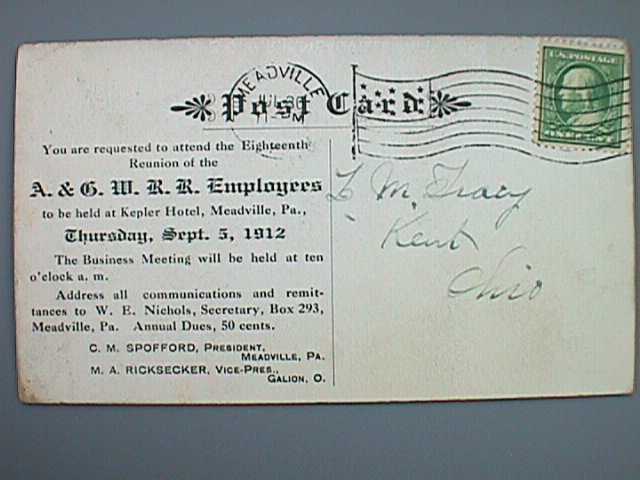 MEADVILLE
U.S. POSTAGE
Post Card
You are requested to attend the Eighteenth
Reunion of the
A. & G. W. R. R. Employees
to be held at Kepler Hotel, Meadville, Pa.,
Thursday, Sept. 5, 1912
The Business Meeting will be held at ten
o'clock a. m.
Address all communications and remit-
tances to W. E. Nichols, Secretary, Box 293,
Meadville, Pa. Annual Dues, 50 cents.
C. M. SPOFFORD, PRESIDENT,
MEADVILLE, PA.
M. A. RICKSECKER, VICE-PRES.,
GALION, O.
M. Tracy
Kent
Ohio